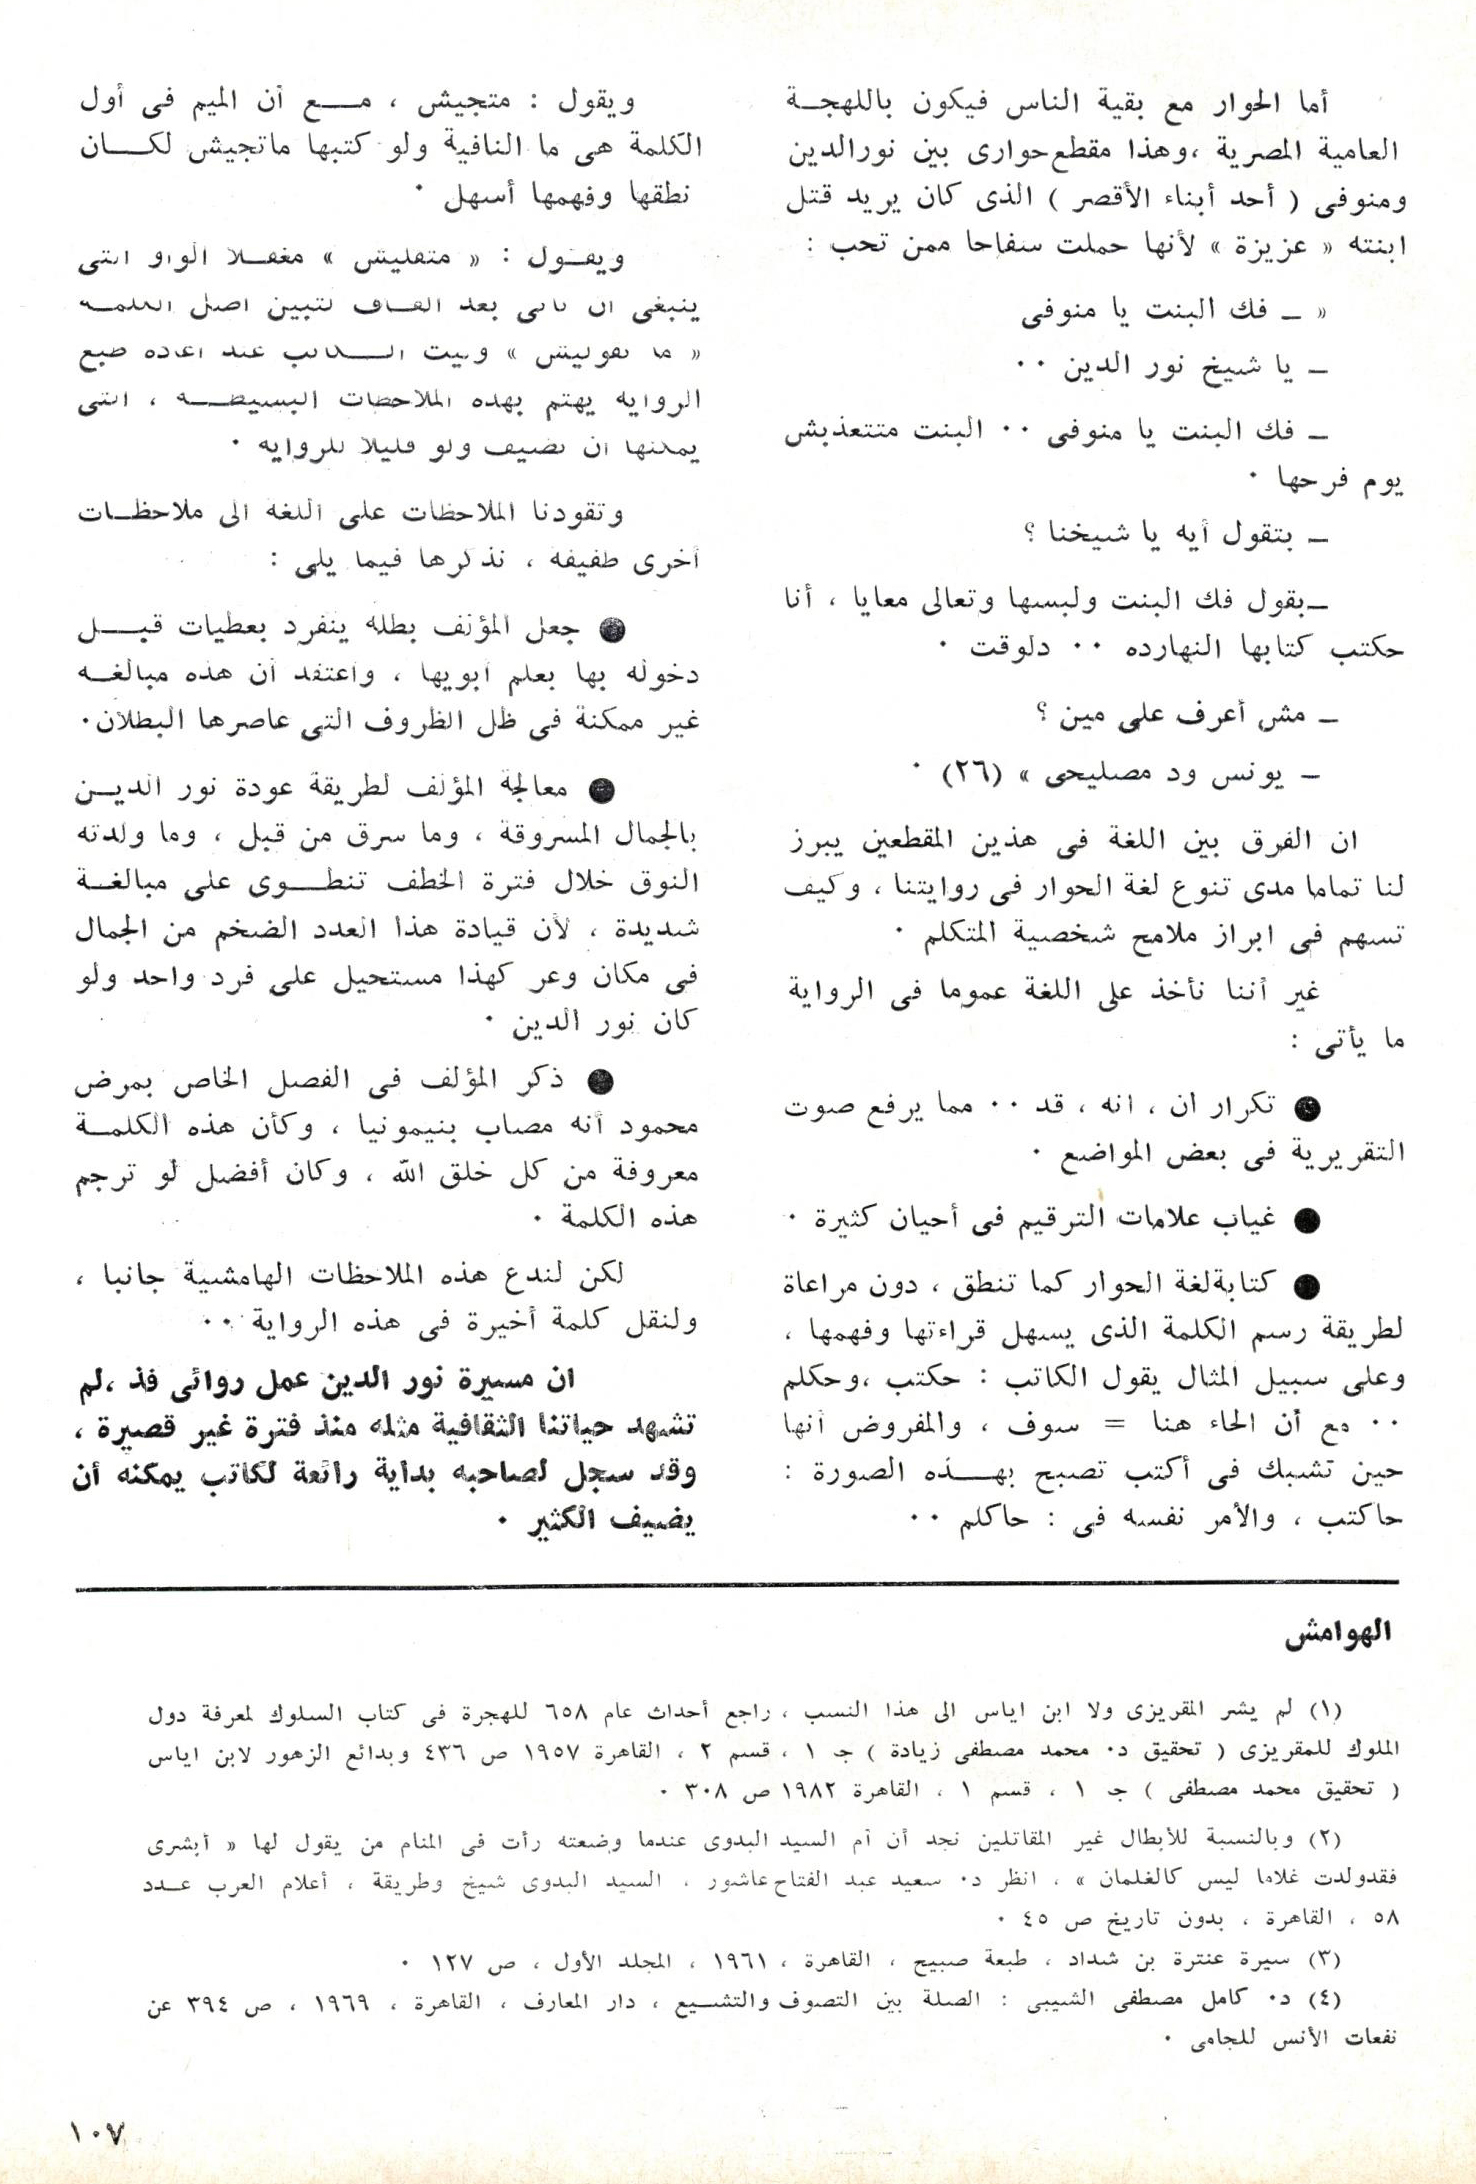 أما الحوار مع بقية الناس فيكون باللهجة
العامية المصرية ،وهذا مقطع حوارى بين نورالدين
ومنوفى ( أحد أبناء الأقصر ) الذى كان يريد قتل
ابنته « عزيزة » لأنها حملت سفاحا ممن تحب :
« ــ فك البنت يا منوفى
ــ يا شيخ نور الدين ٠٠
ــ فك البنت يا منوفى ٠٠ البنت متتعذبش
يوم فرحها ٠
ــ بتقول أيه يا شيخنا ؟
ــ بقول فك البنت ولبسها وتعالى معايا ، أنا
حكتب كتابها النهارده ٠٠ دلوقت ٠
ــ مش أعرف على مين ؟
ــ يونس ود مصليحى » (٢٦) ٠
ان الفرق بين اللغة فى هذين المقطعين يبرز
لنا تماما مدى تنوع لغة الحوار فى روايتنا ، وكيف
تسهم فى ابراز ملامح شخصية المتكلم ٠
غير أننا نأخذ على اللغة عموما فى الرواية
ما يأتى :
● تكرار ان ، انه ، قد ٠٠ مما يرفع صوت
التقريرية فى بعض المواضع ٠
● غياب علامات الترقيم فى أحيان كثيرة ٠
● كتابة لغة الحوار كما تنطق ، دون مراعاة
لطريقة رسم الكلمة الذى يسهل قراءتها وفهمها ،
وعلى سبيل المثال يقول الكاتب : حكتب ،وحكلم
٠٠ مع أن الحاء هنا = سوف ، والمفروض أنها
حين تشبك فى أكتب تصبح بهـذه الصورة :
حاكتب ، والأمر نفسه فى : حاكلم ٠٠
ويقول : متجيش ، مـع أن الميم فى أول
الكلمة هى ما النافية ولو كتبها ماتجيش لكـان
نطقها وفهمها أسهل ٠
ويقـول : « متقليش » مغفـلا الواو التى
ينبغى أن تأتى بعد القاف لتبين أصل الكلمـة
« ما تقوليش » وليت الـكاتب عند اعادة طبع
الرواية يهتم بهذه الملاحظات البسيطـة ، التى
يمكنها أن تضيف ولو قليلا للرواية ٠
وتقودنا الملاحظات على اللغة الى ملاحظـات
أخرى طفيفة ، نذكرها فيما يلى :
● جعل المؤلف بطله ينفرد بعطيات قبـل
دخوله بها بعلم أبويها ، وأعتقد أن هذه مبالغـة
غير ممكنة فى ظل الظروف التى عاصرها البطلان٠
● معالجة المؤلف لطريقة عودة نور الديـن
بالجمال المسروقة ، وما سرق من قبل ، وما ولدته
النوق خلال فترة الخطف تنطـوى على مبالغـة
شديدة ، لأن قيادة هذا العدد الضخم من الجمال
فى مكان وعر كهذا مستحيل على فرد واحد ولو
كان نور الدين ٠
● ذكر المؤلف فى الفصل الخاص بمرض
محمود أنه مصاب بنيمونيا ، وكأن هذه الكلمـة
معروفة من كل خلق الله ، وكان أفضل لو ترجم
هذه الكلمة ٠
لكن لندع هذه الملاحظات الهامشية جانبا ،
ولنقل كلمة أخيرة فى هذه الرواية ٠٠
ان مسيرة نور الدين عمل روائى فذ ،لم
تشهد حياتنا الثقافية مثله منذ فترة غير قصيرة ،
وقد سجل لصاحبه بداية رائعة لكاتب يمكنه أن
يضيف الكثير ٠
الهوامش
(١) لم يشر المقريزى ولا ابن اياس الى هذا النسب ، راجع أحداث عام ٦٥٨ للهجرة فى كتاب السلوك لمعرفة دول
الملوك للمقريزى ( تحقيق د٠ محمد مصطفى زيادة ) جـ ١ ، قسم ٢ ، القاهرة ١٩٥٧ ص ٤٣٦ وبدائع الزهور لابن اياس
( تحقيق محمد مصطفى ) جـ ١ ، قسم ١ ، القاهرة ١٩٨٢ ص ٣٠٨ ٠
(٢) وبالنسبة للأبطال غير المقاتلين نجد أن أم السيد البدوى عندما وضعته رأت فى المنام من يقول لها « أبشرى
فقدولدت غلاما ليس كالغلمان » ، انظر د٠ سعيد عبد الفتاح عاشور ، السيد البدوى شيخ وطريقة ، أعلام العرب عـدد
٥٨ ، القاهرة ، بدون تاريخ ص ٤٥ ٠
(٣) سيرة عنترة بن شداد ، طبعة صبيح ، القاهرة ، ١٩٦١ ، المجلد الأول ، ص ١٢٧ ٠
(٤) د٠ كامل مصطفى الشيبى : الصلة بين التصوف والتشـيع ، دار المعارف ، القاهرة ، ١٩٦٩ ، ص ٣٩٤ عن
نفحات الأنس للجامى ٠
١٠٧